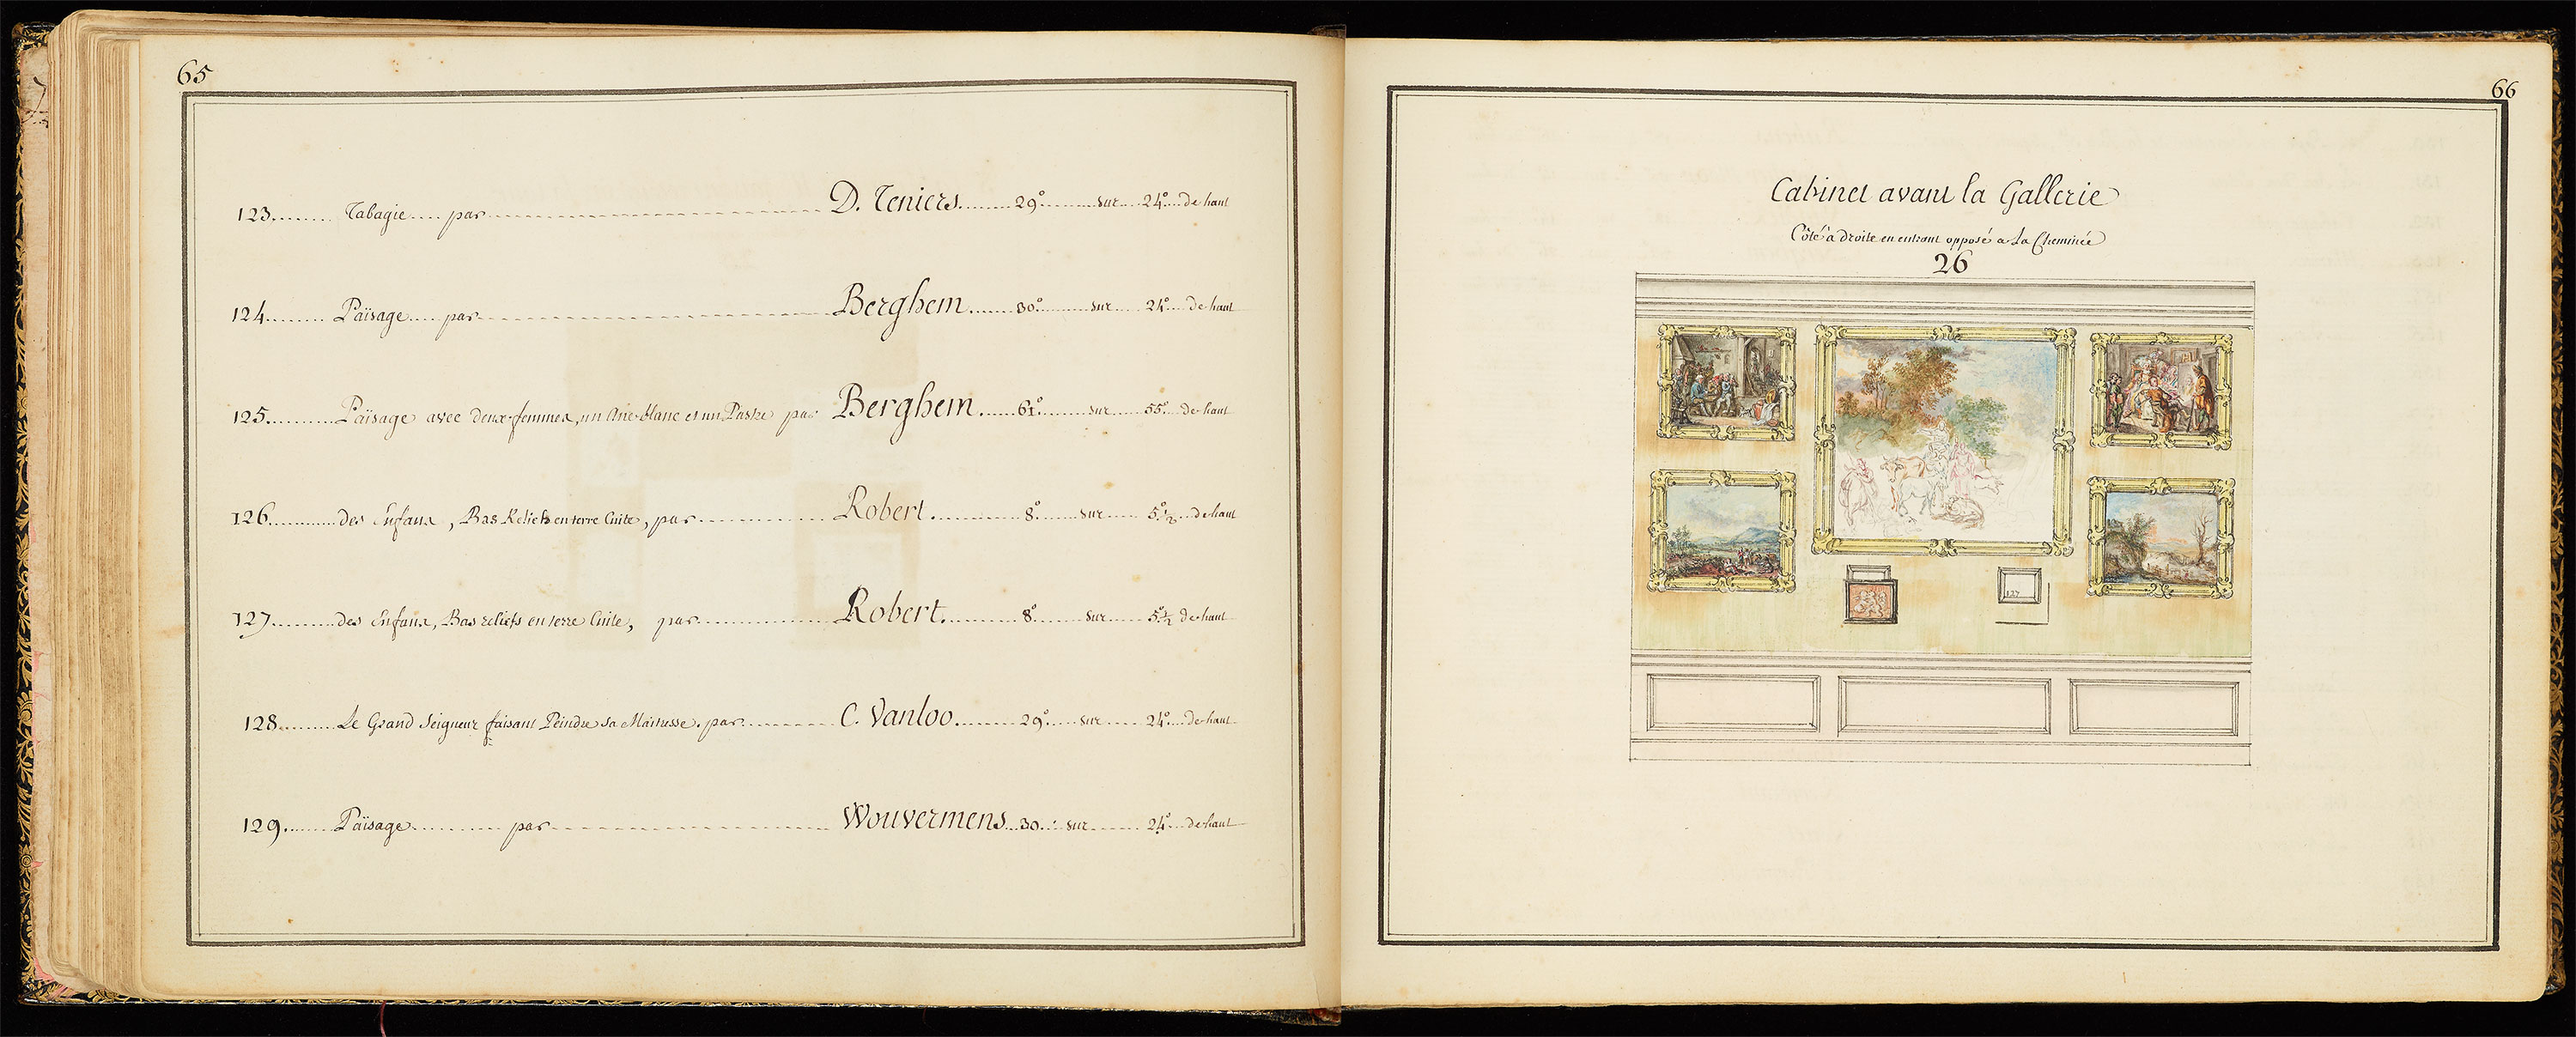 65
123 Tabagie par D. Teniers. 29° sur 24° de haut
124 Païsage par Berghem 30° sur 24° de haut
125 Païsage avec deux femmes, un Ane blanc et un Pastre par Berghem 61° sur 55° de haut
126 des Enfans, Bas Reliefs en terre Cuite, par Robert 8° sur 5°½ de haut
127 des Enfans, Bas reliefs en terre Cuite, par Robert 8° sur 5°½ de haut
128 Le Grand Seigneur faisant Peindre sa Maitresse. par C. Vanloo 29° sur 24° de haut
129. Païsage par Wouvermens 30 sur 24° de haut
66
Cabinet avant la Gallerie
Côté à droite en entrant opposé a La Cheminée
26
127